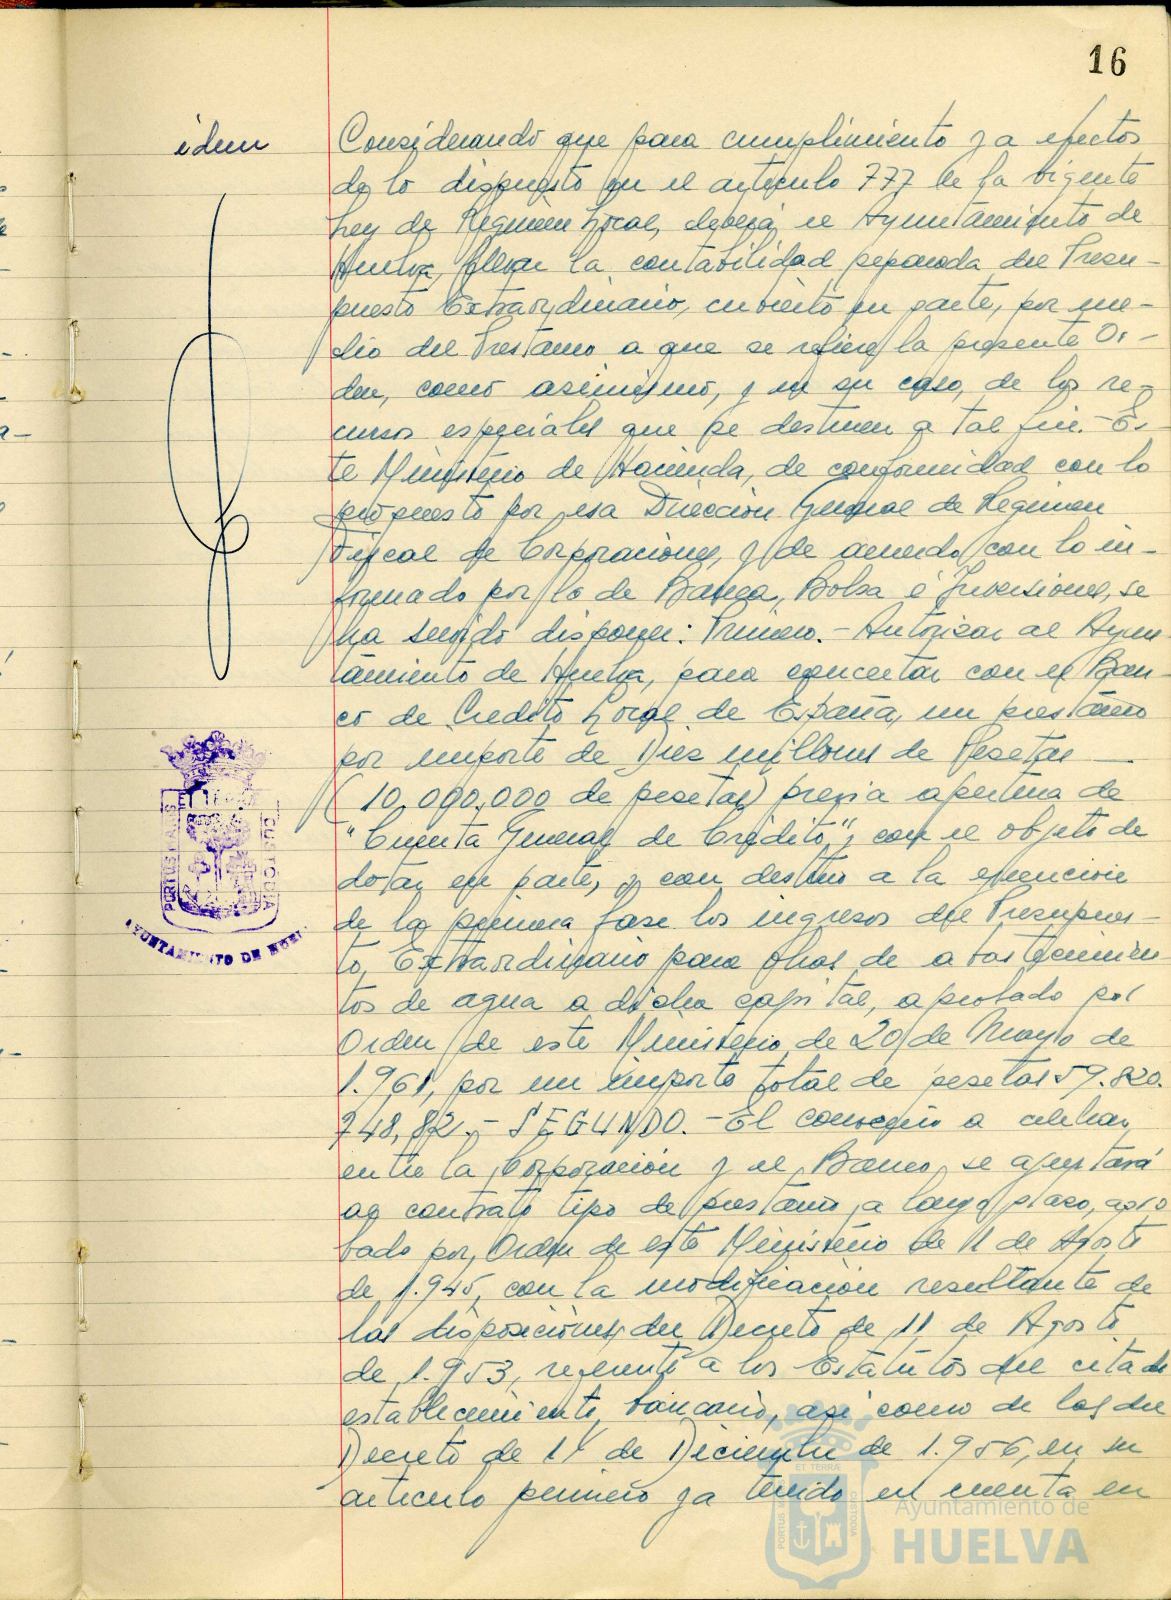 16
idem
Considerando que para cumplimiento y a efectos
de lo dispuesto en el artículo 777 de la vigente
Ley de Régimen Local, deberá el Ayuntamiento de
Huelva, llevar la contabilidad separada del Presu-
puesto Extraordinario, cubierto en parte, por me-
dio del Préstamo a que se refiere la presente Or-
den, como asimismo, y en su caso, de los re-
cursos especiales que se destinen a tal fin.- Es-
te Ministerio de Hacienda, de conformidad con lo
propuesto por esa Dirección General de Régimen
Fiscal de Corporaciones, y de acuerdo con lo in-
formado por la de Banca, Bolsa e Inversiones, se
ha servido disponer: Primero.- Autorizar al Ayun-
tamiento de Huelva, para concertar con el Ban-
co de Crédito Local de España, un préstamo
por importe de Diez millones de Pesetas
(10.000.000 de pesetas) previa apertura de
"Cuenta General de Crédito", con el objeto de
dotar en parte, y con destino a la ejecución
de la primera fase los ingresos del Presupues-
to, Extraordinario para obras de abastecimien-
tos de agua a dicha capital, aprobado por
Orden de este Ministerio de 20 de Mayo de
1.961, por un importe total de pesetas 59.820.
748,82.- SEGUNDO.- El convenio a celebrar
entre la Corporación y el Banco, se ajustará
al contrato tipo de préstamo, a largo plazo, apro
bado por, Orden de este Ministerio de 11 de Agosto
de 1.945, con la modificación resultante de
las disposiciones del Decreto de 11 de Agosto
de 1.953, referente a los Estatutos del citado
establecimiento bancario, así como de las del
Decreto de 11 de Diciembre de 1.956, en su
artículo primero ya tenido en cuenta en
PORTUS MARIS
ET TERRAE
CUSTODIA
AYUNTAMIENTO DE HUEL
Ayuntamiento de
HUELVA